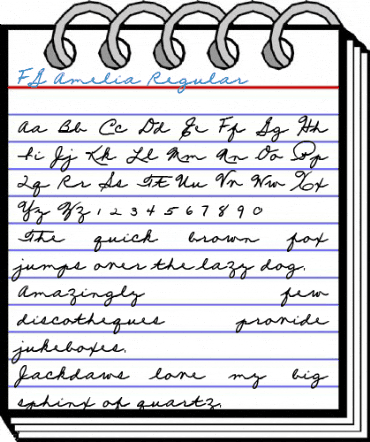 FG Amelia Regular
Aa Bb Cc Dd Ee Ff Gg Hh
Ii Jj Kk Ll Mm Nn Oo Pp
Qq Rr Ss Tt Uu Vv Ww Xx
Yy Zz 1 2 3 4 5 6 7 8 9 0
The quick brown fox
jumps over the lazy dog.
Amazingly few
discotheques provide
jukeboxes.
Jackdaws love my big
sphinx of quartz.